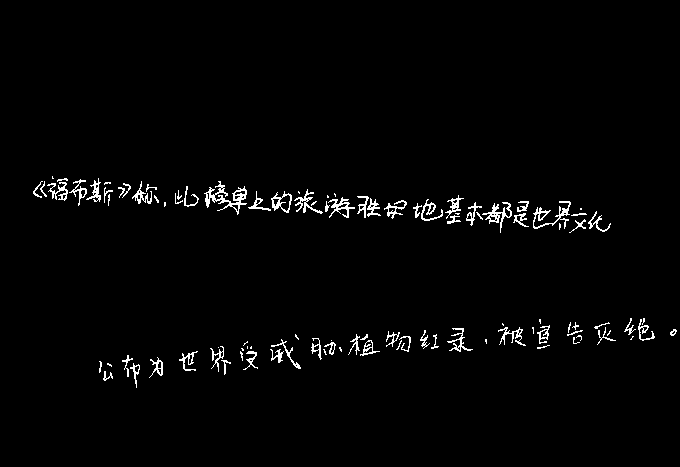 《福布斯》称,此榜单上的旅游胜地基本都是世界文化
公布为世界受威胁植物红录,被宣告灭绝。